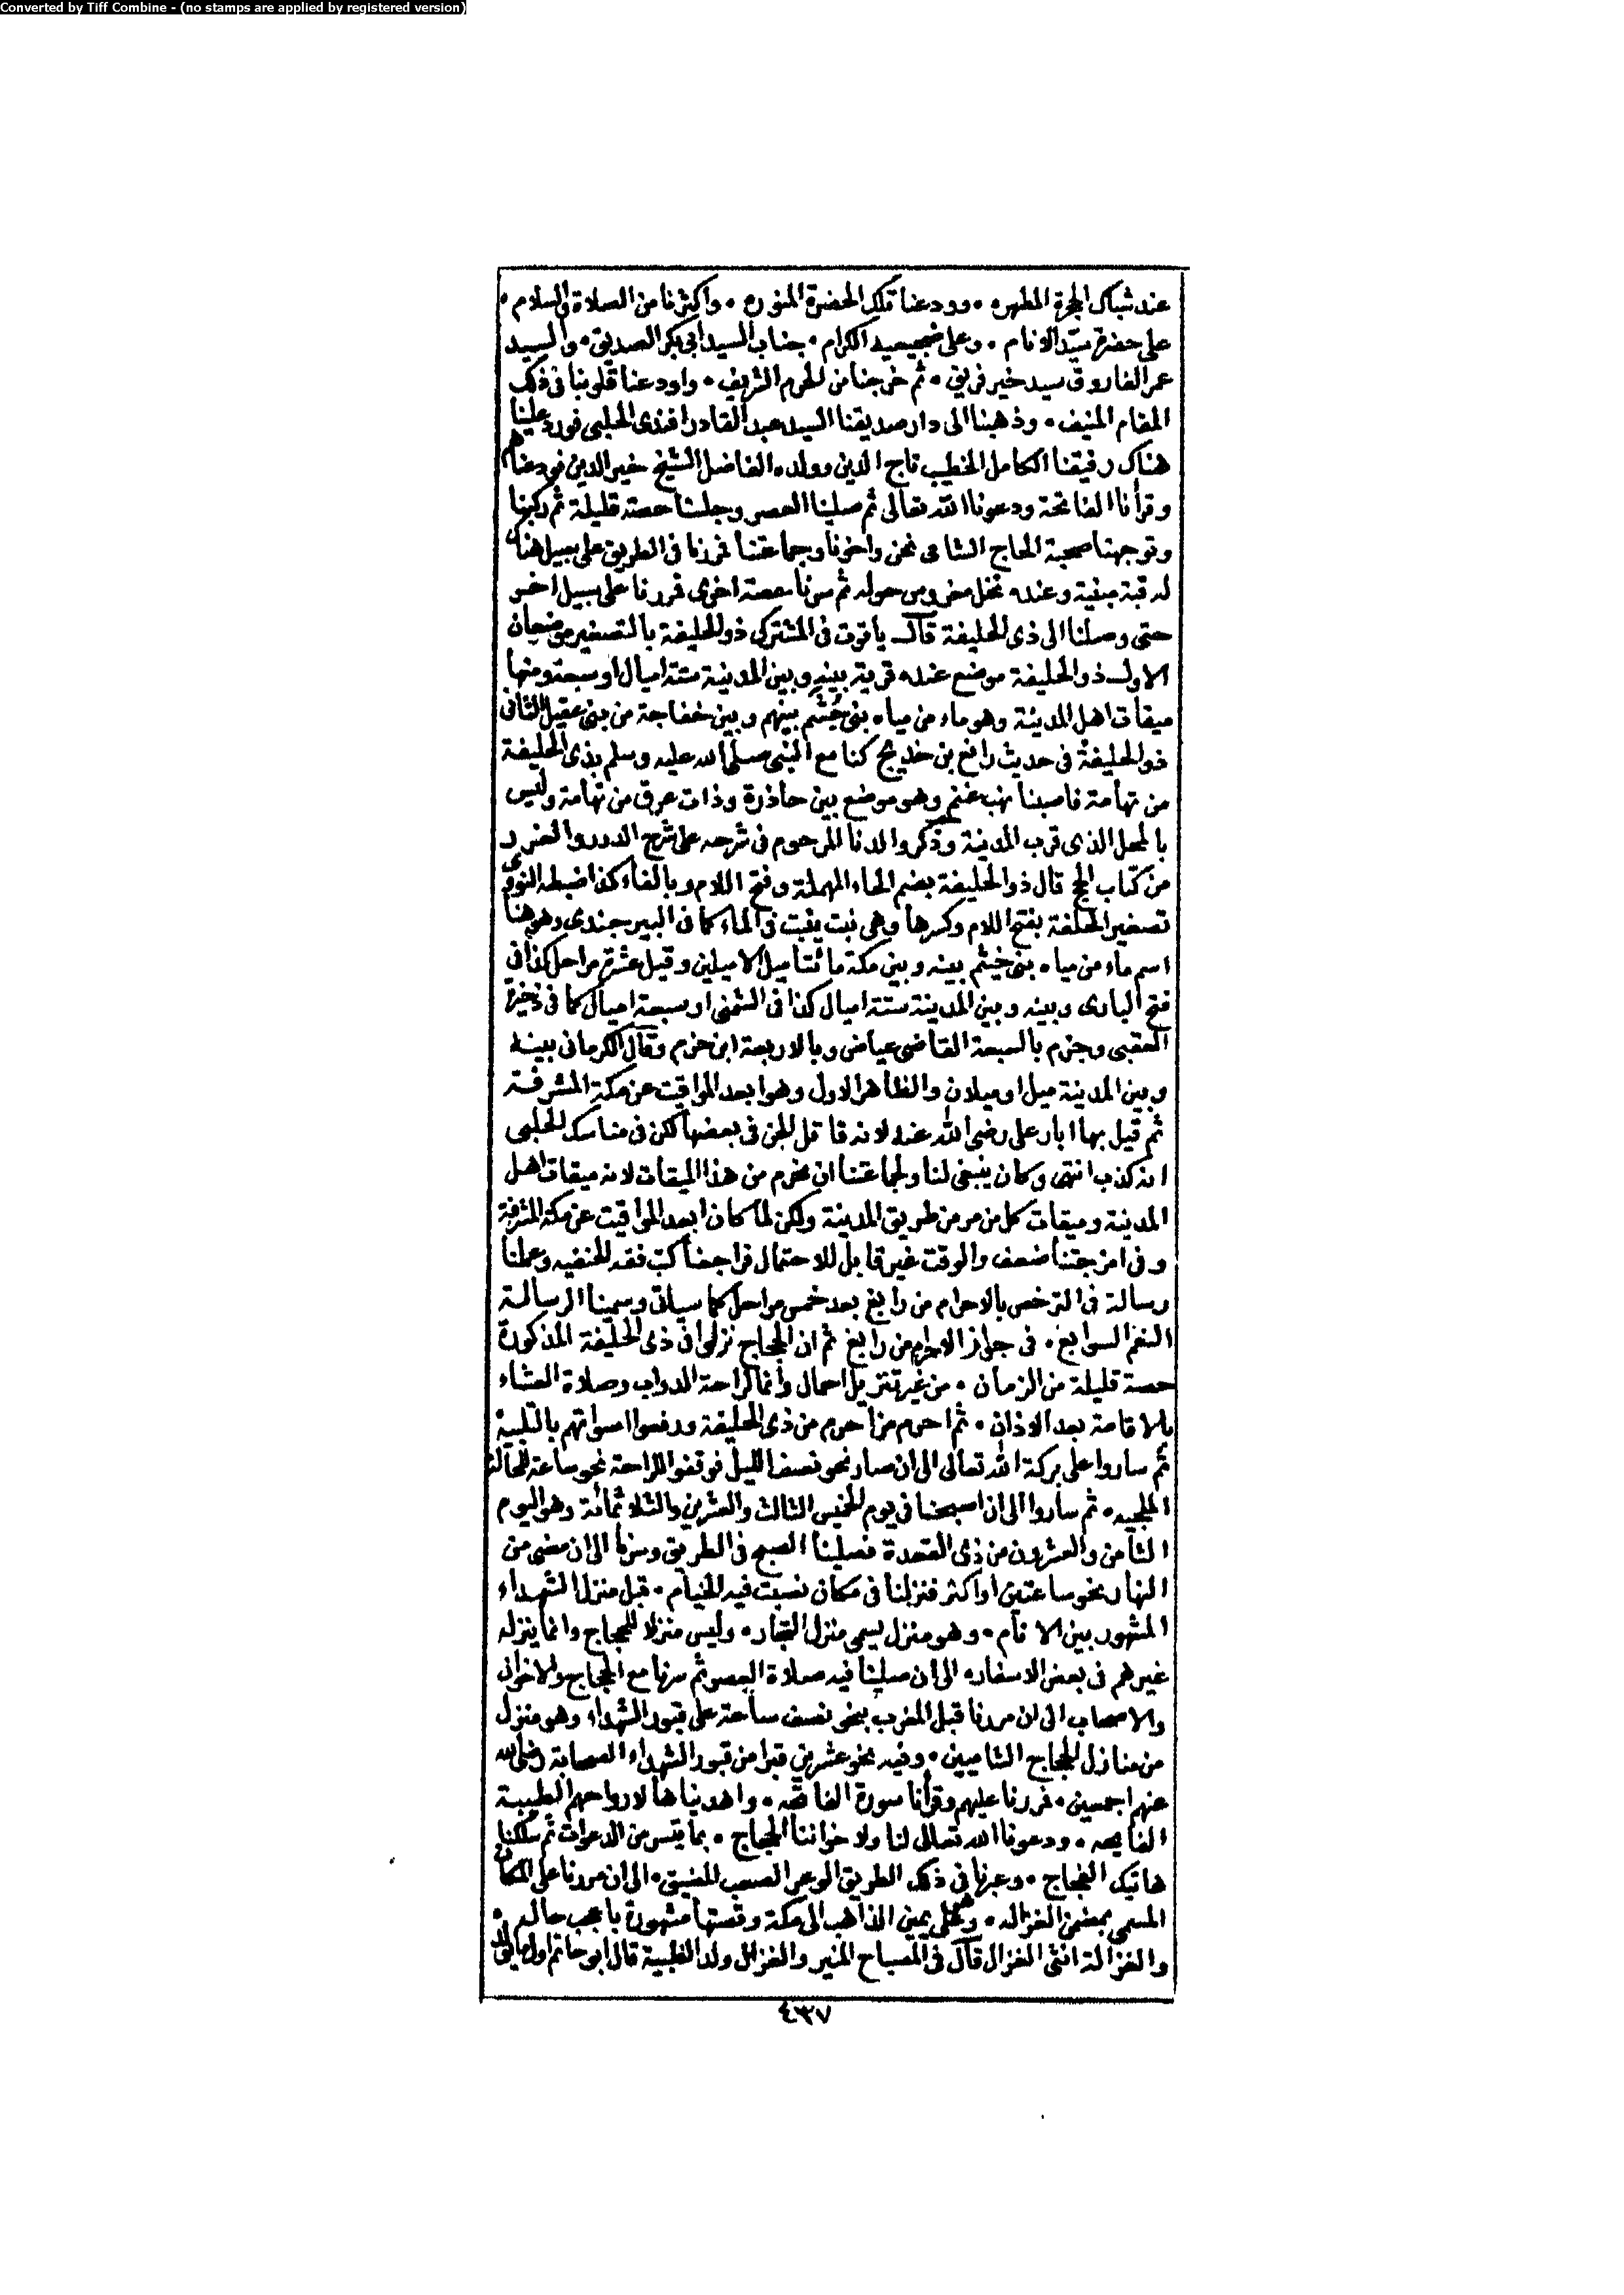 Converted by Tiff Combine - (no stamps are applied by registered version)
عند شباك الحجرة المطهره • وودعنا تلك الحضرة المنوره • واكثرنا من الصلاة والسلام •
على حضرة سيد الانام • وعلى ضجيعيه الكرام • جناب السيد ابى بكر الصديق • والسيد
عمر الفاروق سيد خير فريق • ثم خرجنا من الحرم الشريف • واودعنا قلوبنا فى ذلك
المقام المنيف • وذهبنا الى دار صديقنا السيد عبد القادر افندى الحلبى فورد علينا
هناك رفيقنا الكامل الخطيب تاج الدين وولده الفاضل الشيخ خير الدين فودعناهم
وقرأنا الفاتحة ودعونا الله تعالى ثم صلينا العصر وجلسنا حصة قليلة ثم ركبنا
وتوجهنا صحبة الحاج الشامى نحن واخونا وجماعتنا فمررنا فى الطريق على سبيل هناك
له قبة مبنية وعنده نخل مغروس حوله ثم سرنا حصة اخرى فمررنا على سبيل اخر
حتى وصلنا الى ذى الحليفة قال ياقوت فى المشترك ذو الحليفة بالتصغير موضعان
الاول ذو الحليفة موضع عنده قرية بينه وبين المدينة ستة اميال او سبعة ومنها
ميقات اهل المدينة وهو ماء من مياه بنى جشم بينهم وبين خفاجة من بنى عقيل الثانى
ذو الحليفة فى حديث رافع بن خديج كنا مع النبى صلى الله عليه وسلم بذى الحليفة
من تهامة فاصبنا نهب غنم وهو موضع بين حاذرة وذات عرق من تهامة وليس
بالمحل الذى قرب المدينة وذكر والدنا المرحوم فى شرحه على شرح الدرر والغرر
من كتاب الحج قال ذو الحليفة بضم الحاء المهملة وفتح اللام وبالفاء كذا ضبطه النووى
تصغير الحلفة بفتح اللام وكسرها وهى نبت ينبت فى الماء كما فى البيرجندى وهو هنا
اسم ماء من مياه بنى خيثم بينه وبين مكة مائتا ميل الا ميلين وقيل عشرة مراحل كذا فى
فتح البارى وبينه وبين المدينة ستة اميال كذا فى الشمنى او سبعة اميال كما فى ذخيرة
العقبى وجزم بالسبعة القاضى عياض وبالاربعة ابن حزم وقال الكرمانى بينه
وبين المدينة ميل او ميلان والظاهر الاول وهو ابعد المواقيت عن مكة المشرفة
ثم قيل بها ابار على رضى الله عنه لانه قاتل الجن فى بعضها لكن فى مناسك الحلبى
انه كذب انتهى وكان ينبغى لنا ولجماعتنا ان نحرم من هذا الميقات لانه ميقات اهل
المدينة وميقات كل من مر من طريق المدينة ولكن لما كان ابعد المواقيت عن مكة المشرفة
وفى امزجتنا ضعف والوقت غير قابل للاحتمال فراجعنا كتب فقه الحنفيه وعملنا
رسالة فى الترخص بالاحرام من رابغ بعد خمس مراحل كما سياتى وسمينا الرسالة
النعم السوابغ • فى جواز الاحرام من رابغ ثم ان الحجاج نزلوا فى ذى الحليفة المذكورة
حصة قليلة من الزمان • من غير تنزيل احمال وانما لراحة الدواب وصلاة العشاء
بالاقامة بعد الاذان • ثم احرم من احرم من ذى الحليفة ورفعوا اصواتهم بالتلبية
ثم ساروا على بركة الله تعالى الى ان صار نحو نصف الليل فوقفوا للراحة نحو ساعة
ثم ساروا الى ان اصبحنا فى يوم الخميس الثالث والعشرين والثلاثمائة وهو اليوم
الثامن والعشرون من ذى القعدة فصلينا الصبح فى الطريق وسرنا الى ان مضى من
النهار نحو ساعتين او اكثر فنزلنا فى مكان نصبت فيه الخيام • قبل منزل الشهداء
المشهور بين الانام • وهو منزل يسمى منزل التجار • وليس منزلا للحجاج وانما ينزله
غيرهم فى بعض الاسفار • الى ان صلينا فيه صلاة العصر ثم سرنا مع الحجاج والاخوان
والاصحاب الى ان مررنا قبل المغرب بنحو نصف ساعة على قبور الشهداء وهو منزل
من منازل الحجاج الشاميين • وفيه نحو عشرين قبرا من قبور الشهداء الصحابة رضى الله
عنهم اجمعين • فمررنا عليهم وقرأنا سورة الفاتحه • واهديناها لارواحهم الطيبة
الفايحه • ودعونا الله تعالى لنا ولاخواننا الحجاج • بما يتسر من الدعوات ثم سلكنا
هاتيك الفجاج • وعبرنا فى ذلك الطريق الوعر الصعب المضيق • الى ان مررنا على المكان
المسمى بمضمن الغزاله • وهى على يمين الذاهب الى مكة وقصتها مشهورة باعجب حاله •
والغزالة انثى الغزال قال فى المصباح المنير والغزال ولد الظبية قال ابو حاتم اول ما يولد
٤٣٧